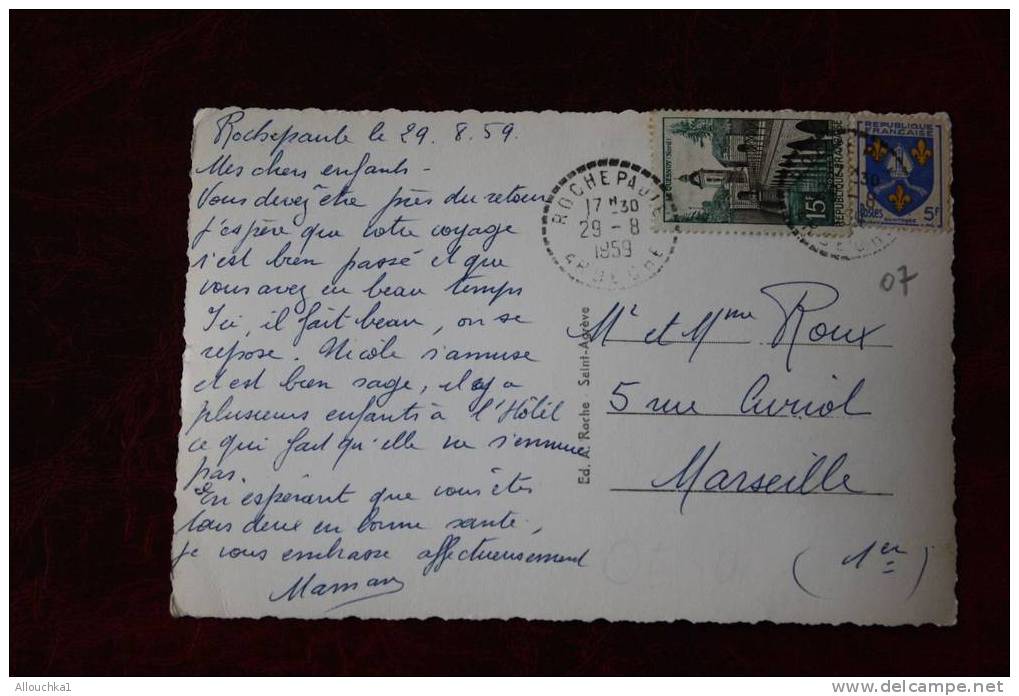 Rochepaule le 29. 8. 59.
Mes chers enfants -
Vous devez être près du retour
j'espère que votre voyage
s'est bien passé et que
vous avez eu beau temps
Ici, il fait beau, on se
repose. Nicole s'amuse
et est bien sage, il y a
plusieurs enfants à l'Hôtel
ce qui fait qu'elle ne s'ennuie
pas.
En espérant que vous êtes
tous deux en bonne santé,
je vous embrasse affectueusement
Maman
Ed. A. Roche - Saint-Agrève
ROCHEPAULE
17H30
29 - 8
1959
ARDECHE
15F
REPUBLIQUE FRANÇAISE
REPUBLIQUE
FRANÇAISE
POSTES
5F
07
Mr et Mme Roux
5 rue Curiol
Marseille
(1er)
Allouchka1
www.delcampe.net